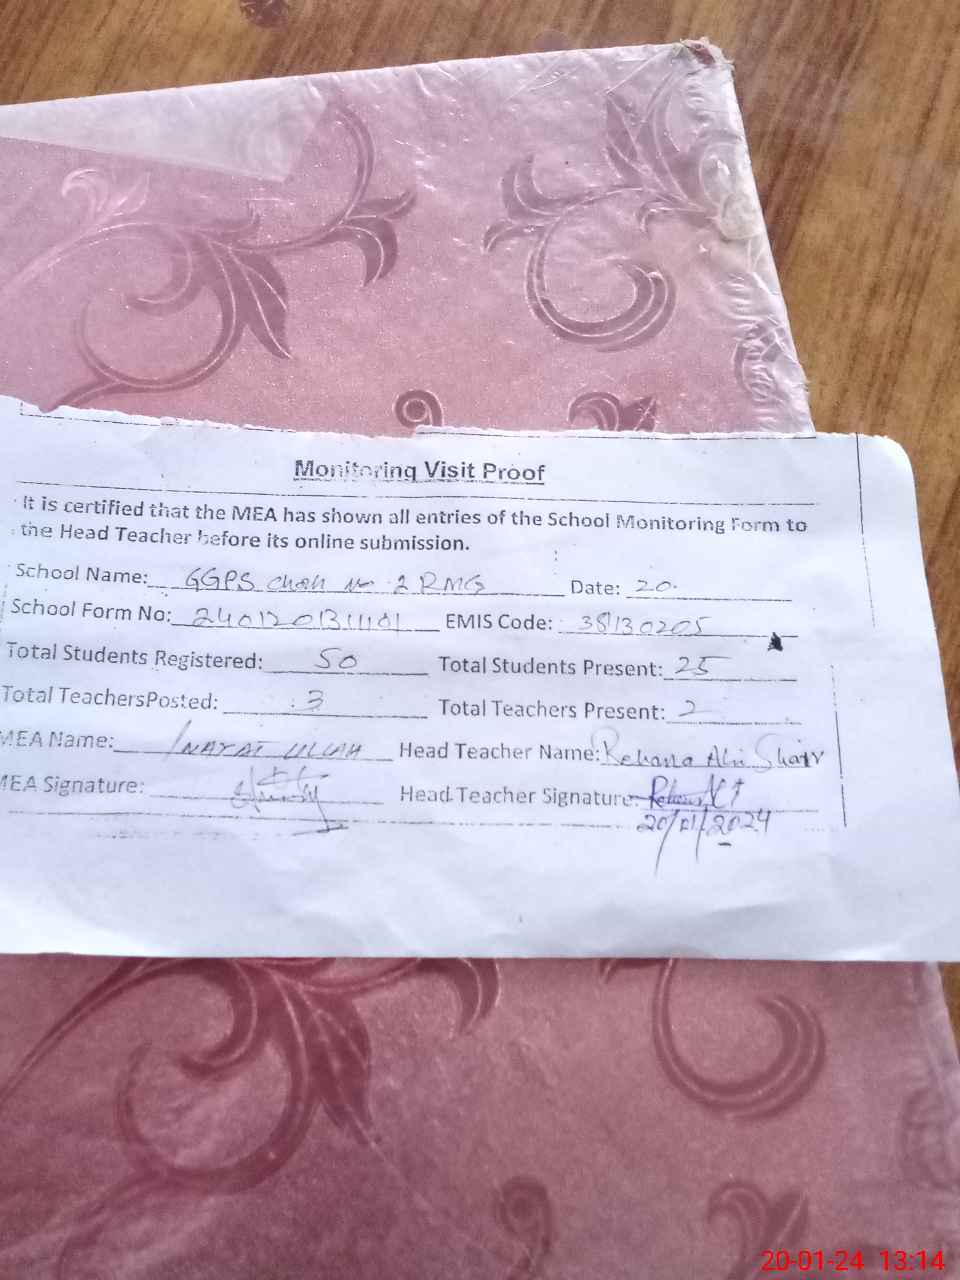 Monitoring Visit Proof
It is certified that the MEA has shown all entries of the School Monitoring Form to
the Head Teacher before its online submission.
School Name: GGPS Chah No 2 RMG Date: 20.
School Form No: EMIS Code: 38130205
Total Students Registered: 50 Total Students Present: 25
Total TeachersPosted: 3 Total Teachers Present: 2
MEA Name: INAYAT ULLAH Head Teacher Name: Rehana Abi
MEA Signature: Head Teacher Signature:
20/01/2024
20-01-24 13:14